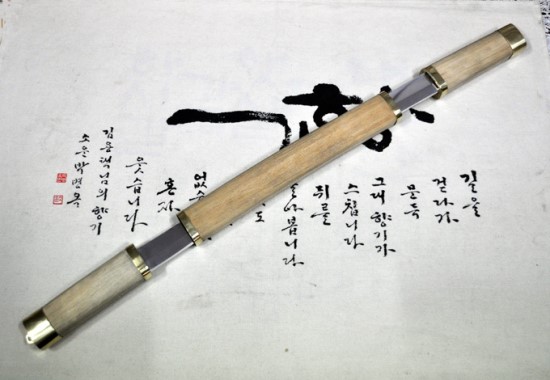 길을
걷다가
문득
그대 향기가
스칩니다
뒤를
돌아봅니다
도
없
혼자
웃습니다
김용택님의 향기